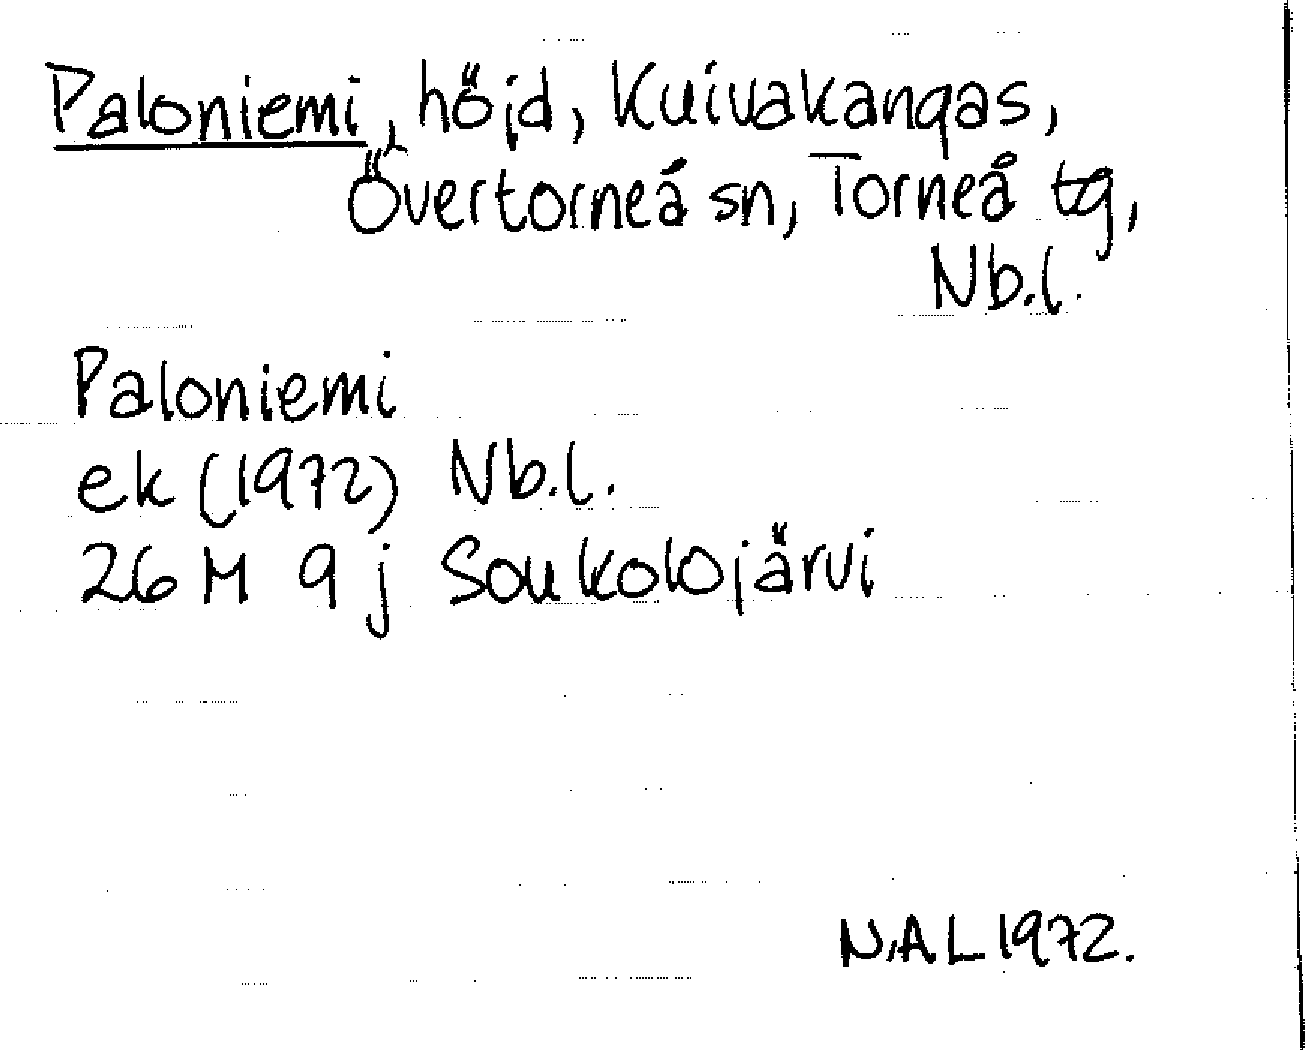 Paloniemi, höjd, Kuivakangas,
Övertorneå sn, Torneå tg,
Nb.l.
Paloniemi
ek (1972) Nb.l.
26 M 9 j Soukolojärvi
N.A.L 1972.